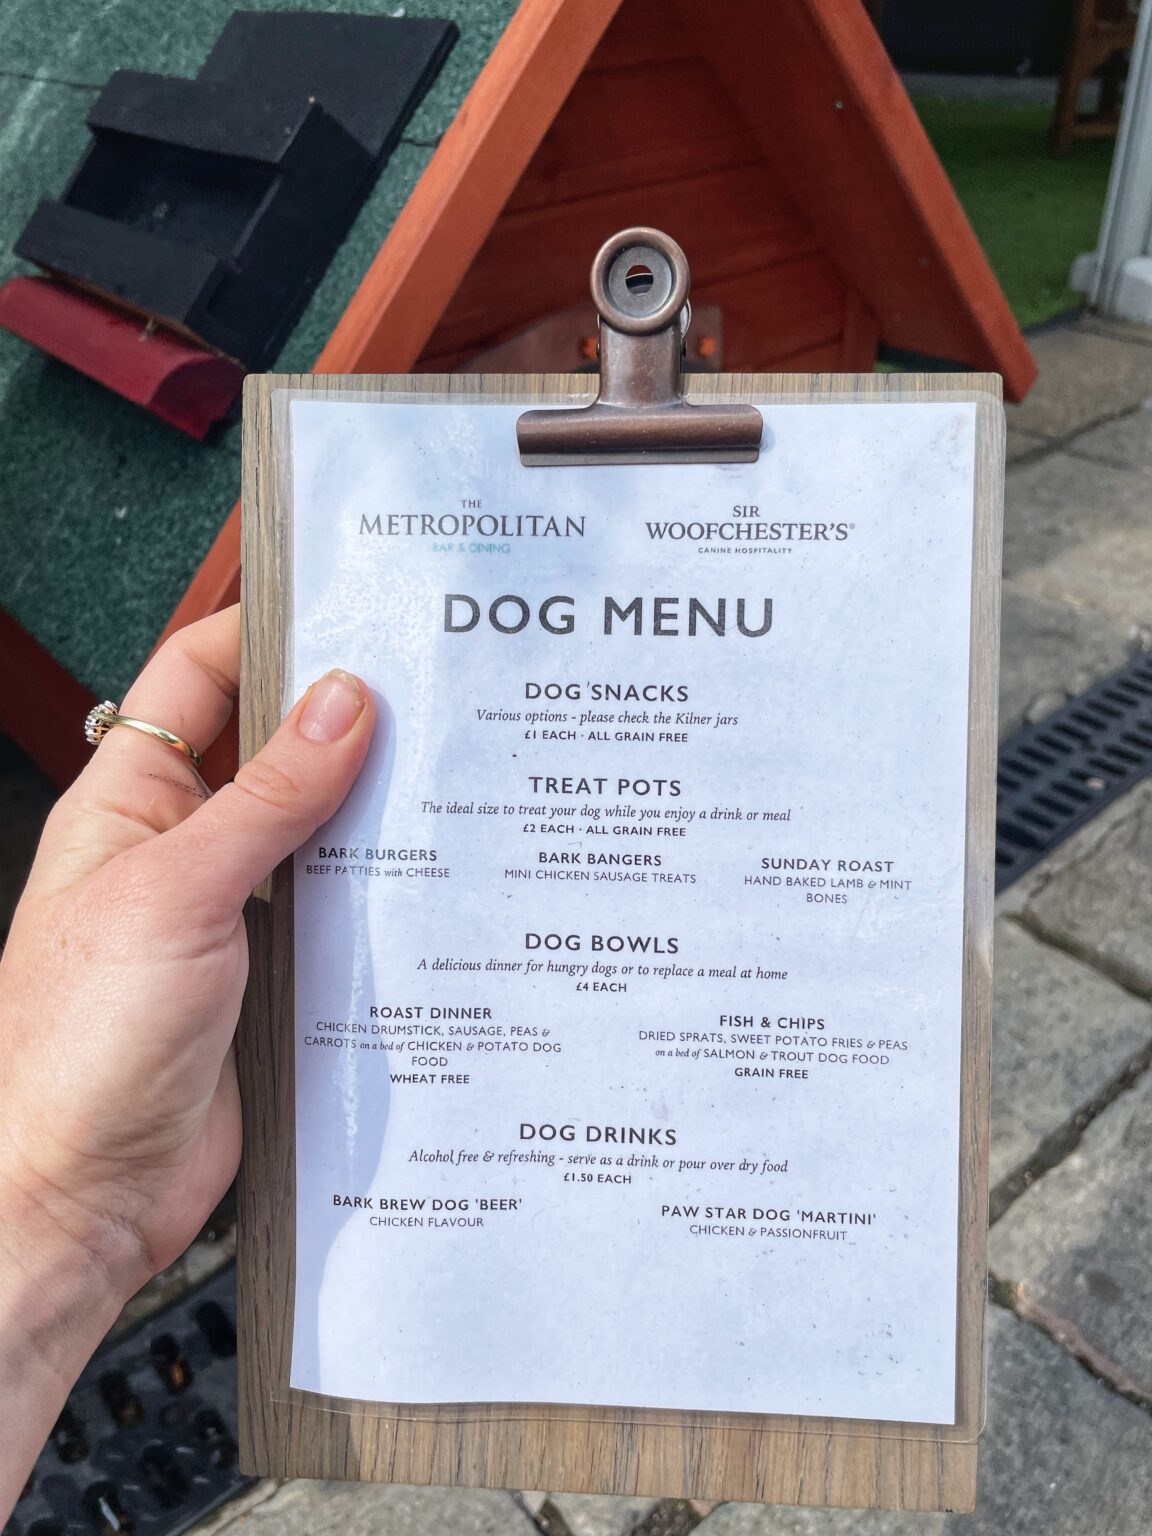 THE
METROPOLITAN
BAR & DINING
SIR
WOOFCHESTER'S®
CANINE HOSPITALITY
DOG MENU
DOG SNACKS
Various options - please check the Kilner jars
£1 EACH · ALL GRAIN FREE
TREAT POTS
The ideal size to treat your dog while you enjoy a drink or meal
£2 EACH · ALL GRAIN FREE
BARK BURGERS
BEEF PATTIES with CHEESE
BARK BANGERS
MINI CHICKEN SAUSAGE TREATS
SUNDAY ROAST
HAND BAKED LAMB & MINT
BONES
DOG BOWLS
A delicious dinner for hungry dogs or to replace a meal at home
£4 EACH
ROAST DINNER
CHICKEN DRUMSTICK, SAUSAGE, PEAS &
CARROTS on a bed of CHICKEN & POTATO DOG
FOOD
WHEAT FREE
FISH & CHIPS
DRIED SPRATS, SWEET POTATO FRIES & PEAS
on a bed of SALMON & TROUT DOG FOOD
GRAIN FREE
DOG DRINKS
Alcohol free & refreshing - serve as a drink or pour over dry food
£1.50 EACH
BARK BREW DOG 'BEER'
CHICKEN FLAVOUR
PAW STAR DOG 'MARTINI'
CHICKEN & PASSIONFRUIT